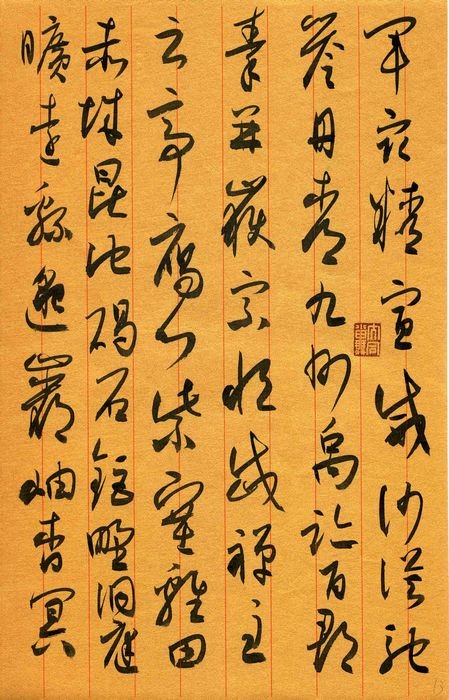 軍最精宣威沙漠馳
譽丹青九州禹跡百郡
秦并嶽宗恒岱禪主
云亭雁門紫塞雞田
赤城昆池碣石鉅野洞庭
曠遠緜邈巖岫杳冥